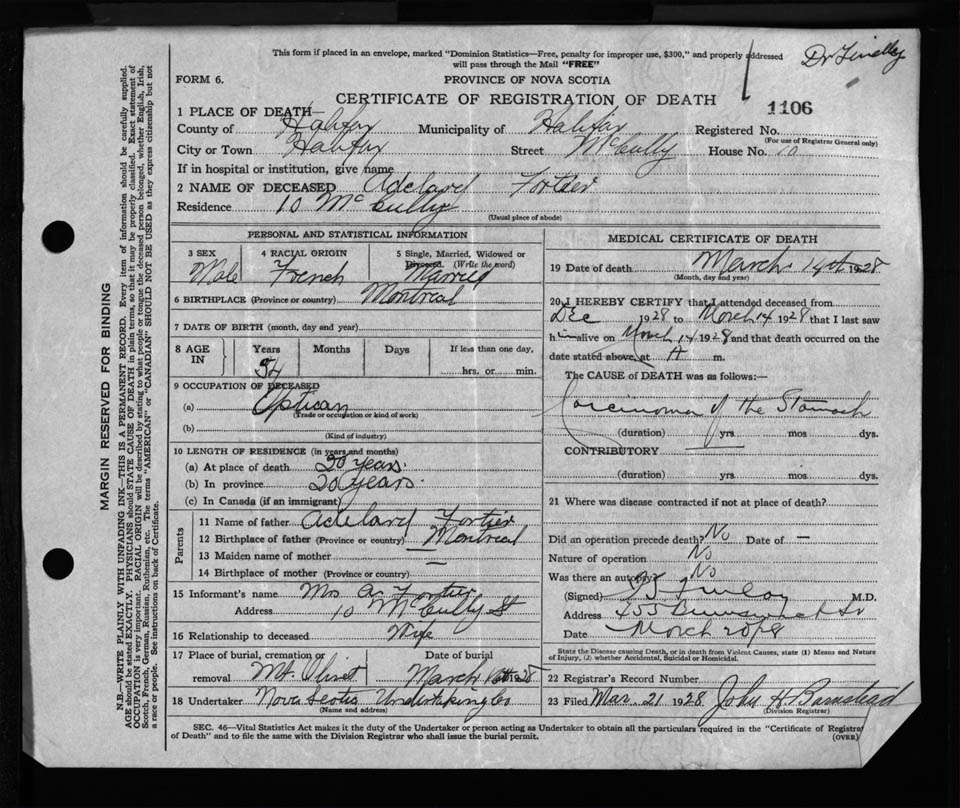 This form if placed in an envelope, marked "Dominion Statistics—Free, penalty for improper use, $300," and properly addressed
will pass through the Mail "FREE"
FORM 6.
PROVINCE OF NOVA SCOTIA
CERTIFICATE OF REGISTRATION OF DEATH
1106
1 PLACE OF DEATH—
County of Halifax Municipality of Halifax Registered No.
(For use of Registrar General only)
City or Town Halifax Street McCully House No. 10
If in hospital or institution, give name
2 NAME OF DECEASED Adelard Fortier
Residence 10 McCully
(Usual place of abode)
PERSONAL AND STATISTICAL INFORMATION
3 SEX
Male
4 RACIAL ORIGIN
French
5 Single, Married, Widowed or
Divorced. (Write the word)
Married
6 BIRTHPLACE (Province or country) Montreal
7 DATE OF BIRTH (month, day and year)
8 AGE IN
Years Months Days If less than one day,
54 hrs. or min.
9 OCCUPATION OF DECEASED
(a) Optican
(Trade or occupation or kind of work)
(b)
(Kind of industry)
10 LENGTH OF RESIDENCE (in years and months)
(a) At place of death 20 years.
(b) In province 20 years.
(c) In Canada (if an immigrant)
Parents
11 Name of father Adelard Fortier
12 Birthplace of father (Province or country) Montreal
13 Maiden name of mother —
14 Birthplace of mother (Province or country)
15 Informant's name Mrs A. Fortier
Address 10 McCully St
16 Relationship to deceased Wife
17 Place of burial, cremation or
removal Mt. Olivet
Date of burial
March 1928
18 Undertaker Nova Scotia Undertaking Co
(Name and address)
MEDICAL CERTIFICATE OF DEATH
19 Date of death March 14th 1928
(Month, day and year)
20 I HEREBY CERTIFY that I attended deceased from
Dec 1928 to March 14 1928 that I last saw
him alive on March 14 1928 and that death occurred on the
date stated above, at A m.
The CAUSE of DEATH was as follows:—
Carcinoma of the Stomach
(duration) yrs. mos. dys.
CONTRIBUTORY
(duration) yrs. mos. dys.
21 Where was disease contracted if not at place of death?
Did an operation precede death? No Date of —
Nature of operation No
Was there an autopsy? No
(Signed) Finlay M.D.
Address 455 St
Date March 20
State the Disease causing Death, or in death from Violent Causes, state (1) Means and Nature
of Injury, (2) whether Accidental, Suicidal or Homicidal.
22 Registrar's Record Number
23 Filed Mar. 21 1928 John H. Barnstead
(Division Registrar)
SEC. 46—Vital Statistics Act makes it the duty of the Undertaker or person acting as Undertaker to obtain all the particulars required in the "Certificate of Registra
of Death" and to file the same with the Division Registrar who shall issue the burial permit.
(OVER)
MARGIN RESERVED FOR BINDING
N.B.—WRITE PLAINLY WITH UNFADING INK—THIS IS A PERMANENT RECORD. Every item of information should be carefully supplied.
AGE should be stated EXACTLY. PHYSICIANS should STATE CAUSE OF DEATH in plain terms, so that it may be properly classified. Exact statement of
OCCUPATION is very important. RACIAL ORIGIN will be described by stating to what people or tongue the deceased person belonged, whether English, Irish,
Scotch, French, German, Russian, Ruthenian, etc. The terms "AMERICAN" or "CANADIAN" SHOULD NOT BE USED as they express citizenship but not
a race or people. See instructions on back of Certificate.